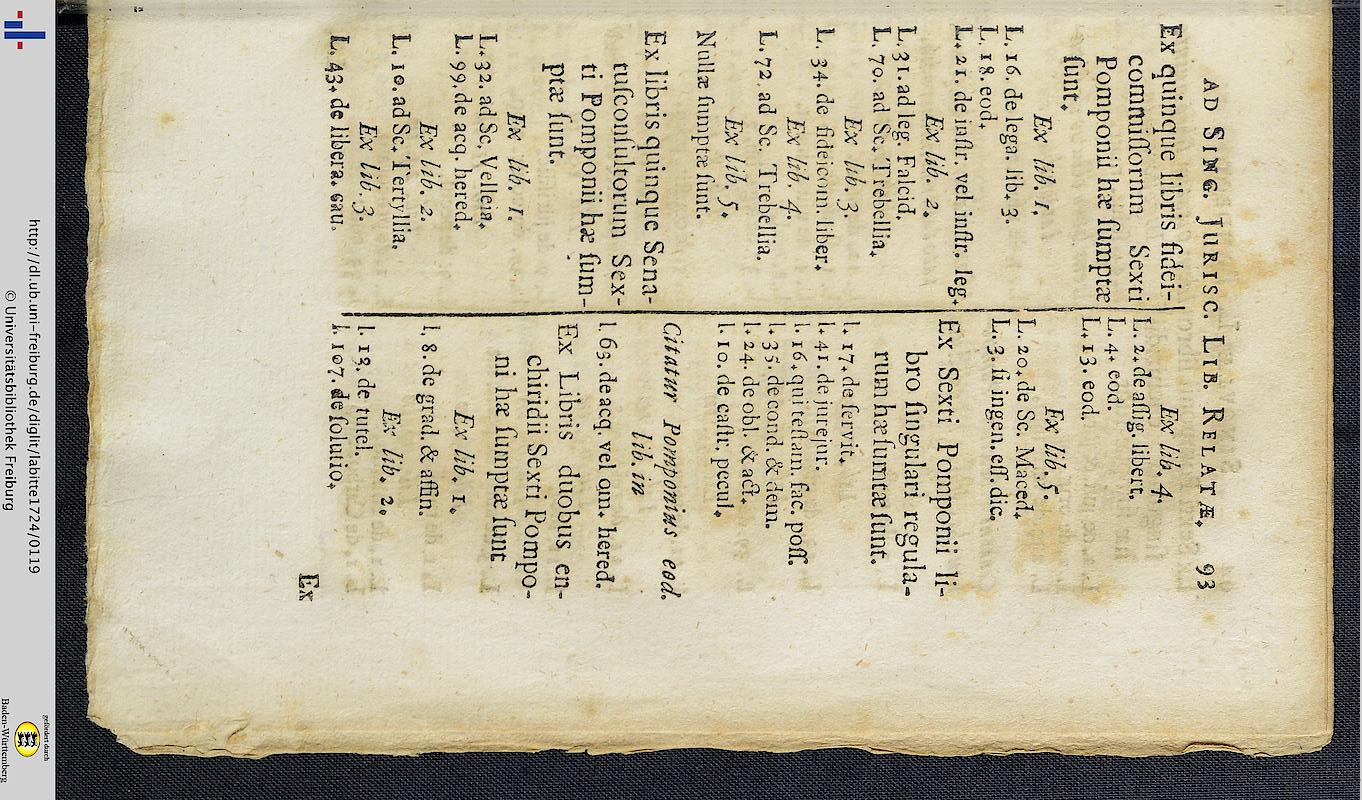 AD SING. JURISC. LIB. RELATÆ. 93
Ex quinque libris fidei-
commiſſorum Sexti
Pomponii hæ ſumptæ
ſunt.
Ex lib. 1.
L. 16. de lega. lib. 3.
L. 18. eod.
L. 21. de inſtr. vel inſtr. leg.
Ex lib. 2.
L. 31. ad leg. Falcid.
L. 70. ad Sc. Trebellia.
Ex lib. 3.
L. 34. de fideicom. liber.
Ex lib. 4.
L. 72. ad Sc. Trebellia.
Ex lib. 5.
Nullæ ſumptæ ſunt.
Ex libris quinque Sena-
tuſconſultorum Sex-
ti Pomponii hæ ſum-
ptæ ſunt.
Ex lib. 1.
L. 32. ad Sc. Velleia.
L. 99. de acq. hered.
Ex lib. 2.
L. 10. ad Sc. Tertyllia.
Ex lib. 3.
L. 43. de libera. cau.
Ex lib. 4.
L. 2. de aſſig. libert.
L. 4. eod.
L. 13. eod.
Ex lib. 5.
L. 20. de Sc. Maced.
L. 3. ſi ingen. eſſ. dic.
Ex Sexti Pomponii li-
bro ſingulari regula-
rum hæ ſumtæ ſunt.
l. 17. de ſervit.
l. 41. de jurejur.
l. 16. qui teſtam. fac. poſſ.
l. 35. de cond. & dem.
l. 24. de obl. & act.
l. 10. de caſtr. pecul.
Citatur Pomponius eod.
lib. in
l. 63. de acq. vel om. hered.
Ex Libris duobus en-
chiridii Sexti Pompo-
ni hæ ſumptæ ſunt
Ex lib. 1.
l. 8. de grad. & affin.
Ex lib. 2.
l. 13. de tutel.
l. 107. de ſolutio.
Ex
http://dl.ub.uni-freiburg.de/diglit/labitte1724/0119
© Universitätsbibliothek Freiburg
gefördert durch
Baden-Württemberg